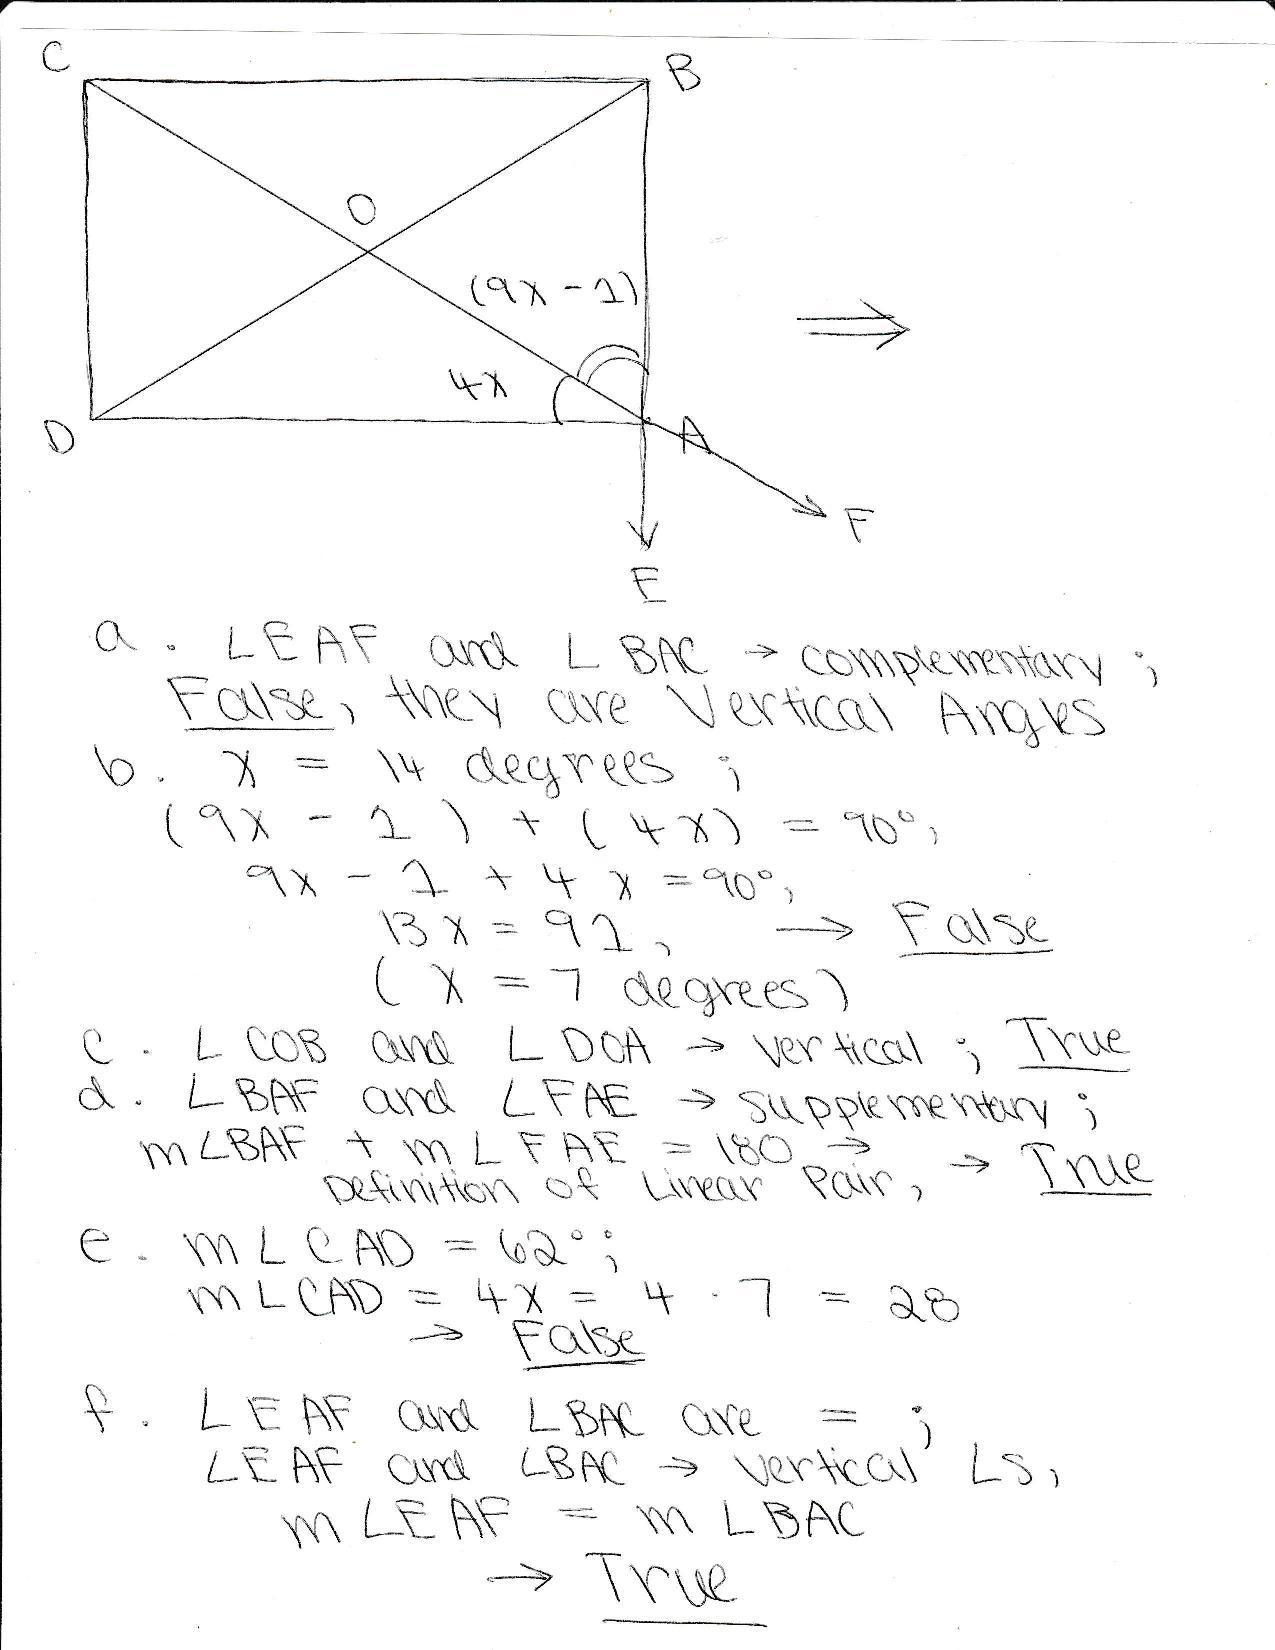 C
B
O
(9x - 1)
4x
D
A
F
E
a. ∠EAF and ∠BAC → complementary ;
False, they are Vertical Angles
b. x = 14 degrees ;
(9x - 1) + (4x) = 90°,
9x - 1 + 4x = 90°,
13x = 91, → False
(x = 7 degrees)
c. ∠COB and ∠DOA → vertical ; True
d. ∠BAF and ∠FAE → supplementary ;
m∠BAF + m∠FAE = 180 →
Definition of Linear Pair, → True
e. m∠CAD = 62° ;
m∠CAD = 4x = 4 · 7 = 28
→ False
f. ∠EAF and ∠BAC are = ;
∠EAF and ∠BAC → vertical ∠s,
m∠EAF = m∠BAC
→ True